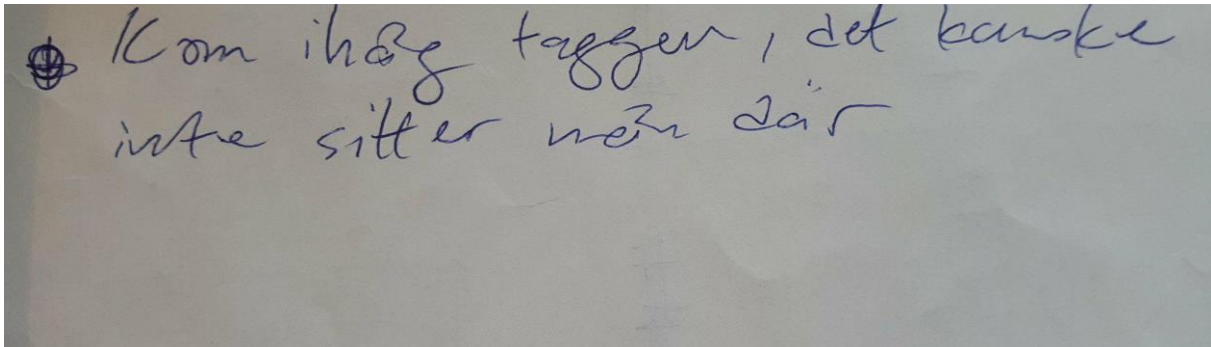 Kom ihåg taggen, det kanske
inte sitter nån där